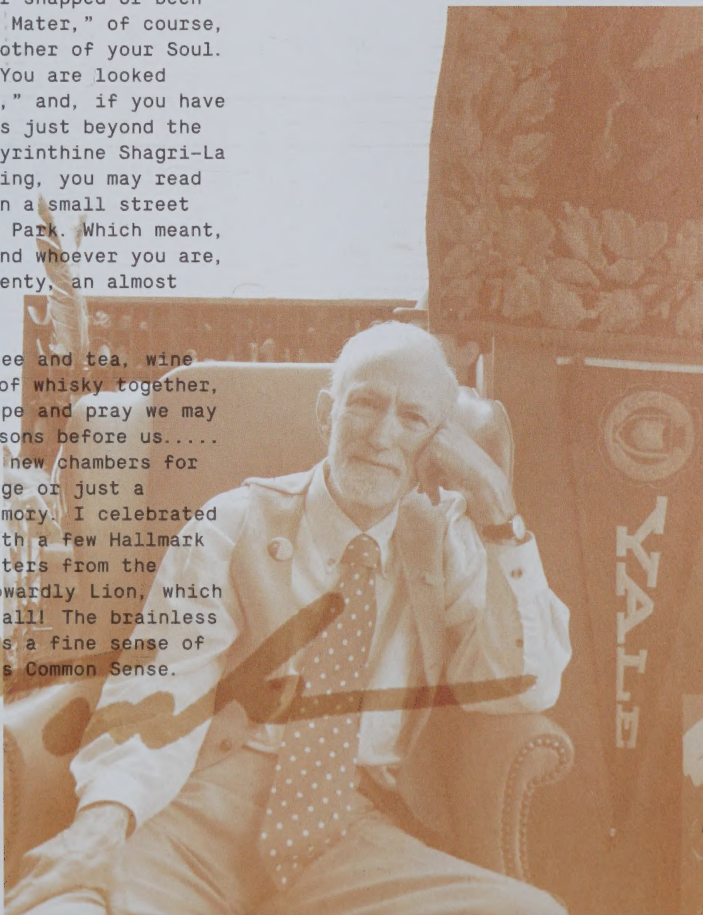 Mater," of course,
other of your Soul.
You are looked
," and, if you have
s just beyond the
yrinthine Shagri-La
ing, you may read
n a small street
Park. Which meant,
nd whoever you are,
enty, an almost
ee and tea, wine
of whisky together,
pe and pray we may
sons before us.....
new chambers for
ge or just a
mory. I celebrated
th a few Hallmark
ters from the
owardly Lion, which
all! The brainless
s a fine sense of
s Common Sense.
YALE